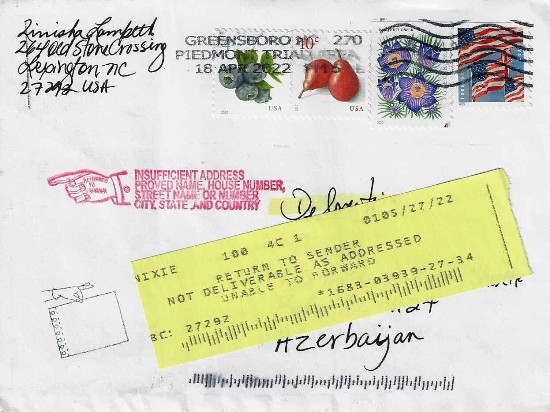 Zinisha Lambeth
264 Old Stone Crossing
Lexington NC
27292 USA
GREENSBORO NC 270
PIEDMONT TRIAD AREA
18 APR 2022 PM 5 L
10c
USA
USA
INSUFFICIENT ADDRESS
PROVED NAME, HOUSE NUMBER,
STREET NAME OR NUMBER
CITY, STATE AND COUNTRY
NIXIE 100 4C 1 0105/27/22
RETURN TO SENDER
NOT DELIVERABLE AS ADDRESSED
UNABLE TO FORWARD
BC: 27292 *1683-03939-27-34
Azerbaijan